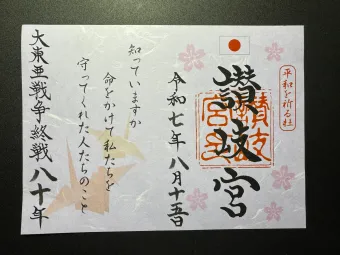 平和を祈る社
讃岐宮
讃岐宮
令和七年八月十五日
知っていますか
命をかけて私たちを
守ってくれた人たちのこと
大東亜戦争終戦八十年